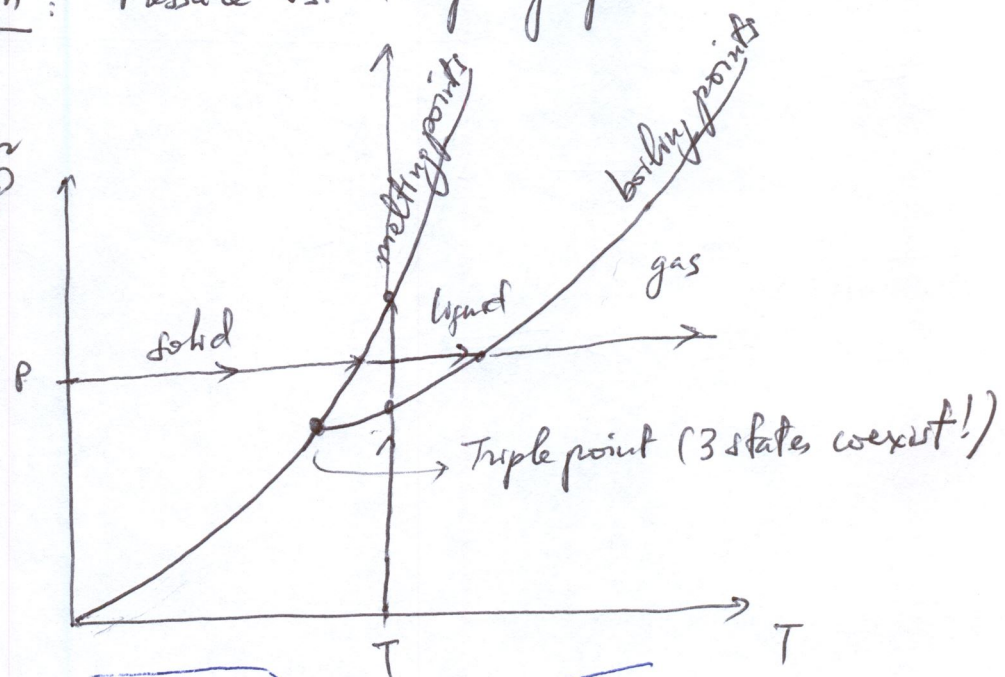 Pressure vs.
melting points
boiling points
gas
liquid
solid
P
Triple point (3 states coexist!)
T
T